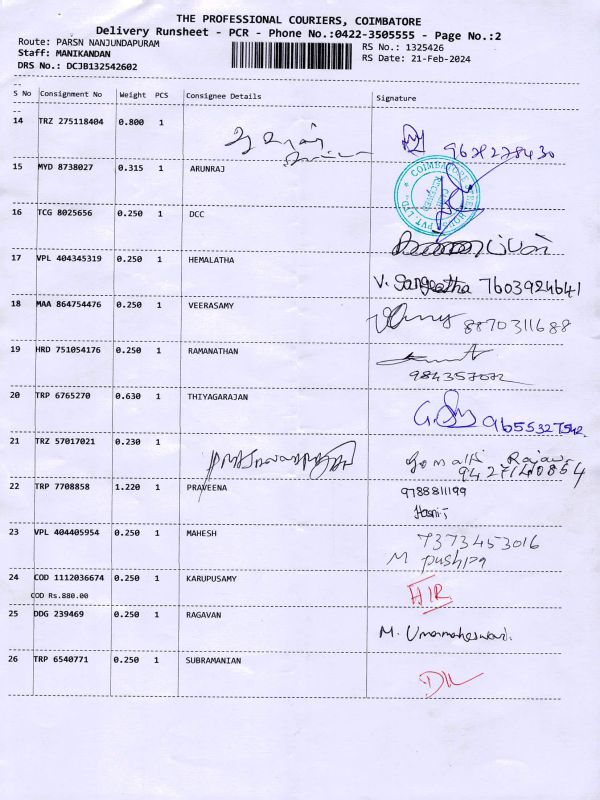 THE PROFESSIONAL COURIERS, COIMBATORE
Delivery Runsheet - PCR - Phone No.:0422-3505555 - Page No.:2
Route: PARSN NANJUNDAPURAM
RS No.: 1325426
Staff: MANIKANDAN
RS Date: 21-Feb-2024
DRS No.: DCJB132542602
S No Consignment No Weight PCS Consignee Details Signature
14 TRZ 275118404 0.800 1
9629228430
15 MYD 8738027 0.315 1 ARUNRAJ
COIMBATORE
PVT. LTD.
16 TCG 8025656 0.250 1 DCC
17 VPL 404345319 0.250 1 HEMALATHA
V. Sangeetha 7603924641
18 MAA 864754476 0.250 1 VEERASAMY
8870311688
19 HRD 751054176 0.250 1 RAMANATHAN
20 TRP 6765270 0.630 1 THIYAGARAJAN
21 TRZ 57017021 0.230 1
22 TRP 7708858 1.220 1 PRAVEENA
9788811199
23 VPL 404405954 0.250 1 MAHESH
7373453016
M pushpa
24 COD 1112036674 0.250 1 KARUPUSAMY
COD Rs.880.00
25 DDG 239469 0.250 1 RAGAVAN
M. Umamaheswari.
26 TRP 6540771 0.250 1 SUBRAMANIAN